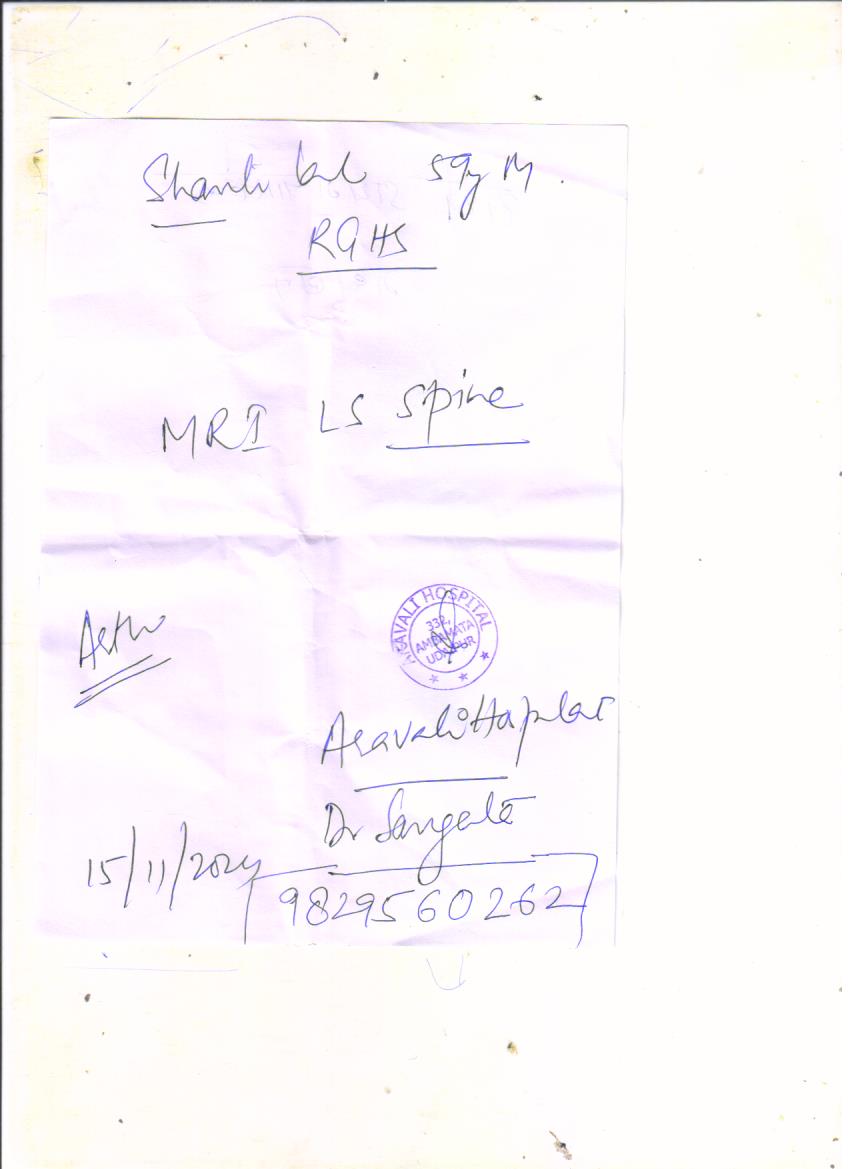 Shanti Lal 59y M.
RGHS
MRI LS Spine
ARAVALI HOSPITAL
332,
AMBAMATA
UDAIPUR
Aravali Hospital
Dr Sangeeta
15/11/2024
9829560262